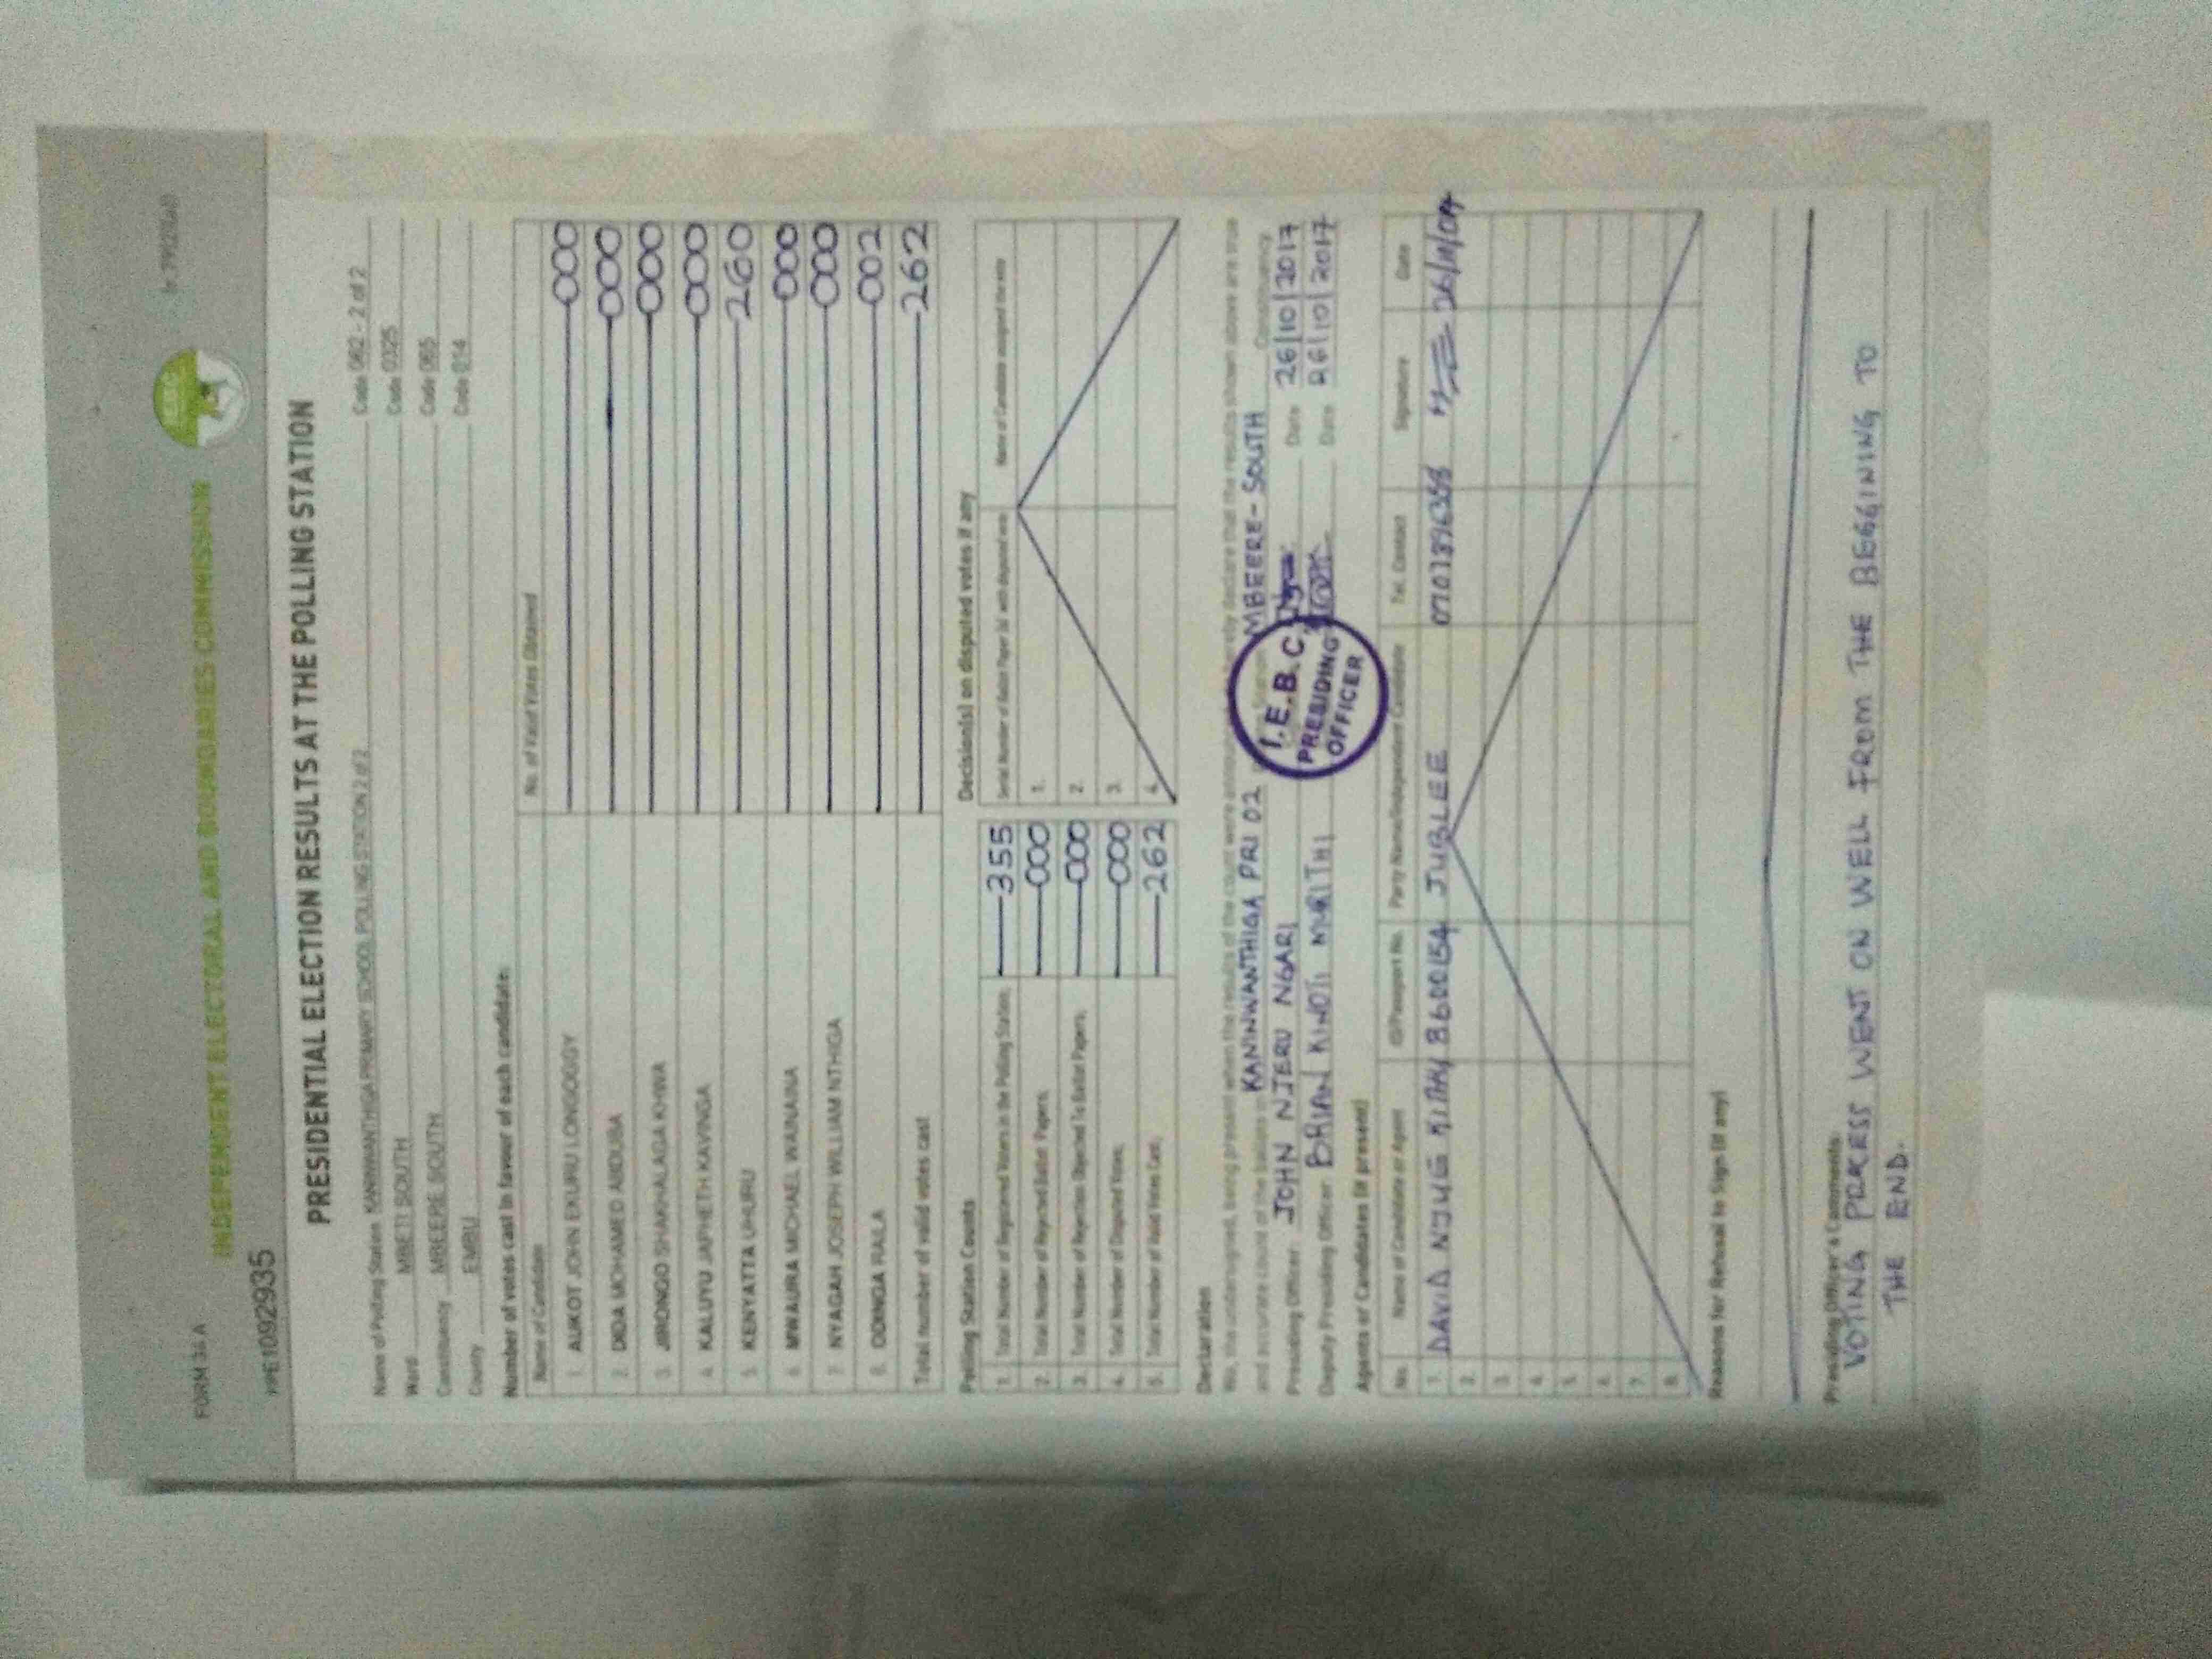 FORM 34A
INDEPENDENT ELECTORAL AND BOUNDARIES COMMISSION
PRE1092935
PRESIDENTIAL ELECTION RESULTS AT THE POLLING STATION
Name of Polling Station KANINWANTHIGA PRIMARY SCHOOL POLLING STATION 2 of 2 Code 082 - 2 of 2
Ward MBETI SOUTH Code 0325
Constituency MBEERE SOUTH Code 065
County EMBU Code 014
Number of votes cast in favour of each candidate:
Name of Candidate No. of Valid Votes Obtained
1. AUKOT JOHN EKURU LONGOGGY 000
2. DIDA MOHAMED ABDUBA 000
3. JIRONGO SHAKHALAGA KHWA 000
4. KALUYU JAPHETH KAVINGA 000
5. KENYATTA UHURU 260
6. MWAURA MICHAEL WAINAINA 000
7. NYAGAH JOSEPH WILLIAM NTHIGA 000
8. ODINGA RAILA 002
Total number of valid votes cast 262
Polling Station Counts
1. Total Number of Registered Voters in the Polling Station 355
2. Total Number of Rejected Ballot Papers 000
3. Total Number of Rejection Objected To Ballot Papers 000
4. Total Number of Disputed Votes 000
5. Total Number of Valid Votes Cast 262
Decision(s) on disputed votes if any
Serial Number of Ballot Paper (s) with disputed vote Name of Candidate assigned the vote
1.
2.
3.
4.
Declaration
We, the undersigned, being present when the results of the count were announced, do hereby declare that the results shown above are true
and accurate count of the ballots in KANINWANTHIGA PRI 02 MBEERE-SOUTH Constituency
Presiding Officer: JOHN NJERU NGARI Date 26/10/2017
Deputy Presiding Officer BRIAN KINOTI MURITHI Date 26/10/2017
I.E.B.C.
PRESIDING
OFFICER
Agents or Candidates (if present)
No. Name of Candidate or Agent ID/Passport No. Party Name/Independent Candidate Tel. Contact Signature Date
1. DAVID JUBLEE
2.
3.
4.
5.
6.
7.
8.
Reasons for Refusal to Sign (if any)
Presiding Officer's Comments:
VOTING PROCESS WENT ON WELL FROM THE BEGGINING TO
THE END.